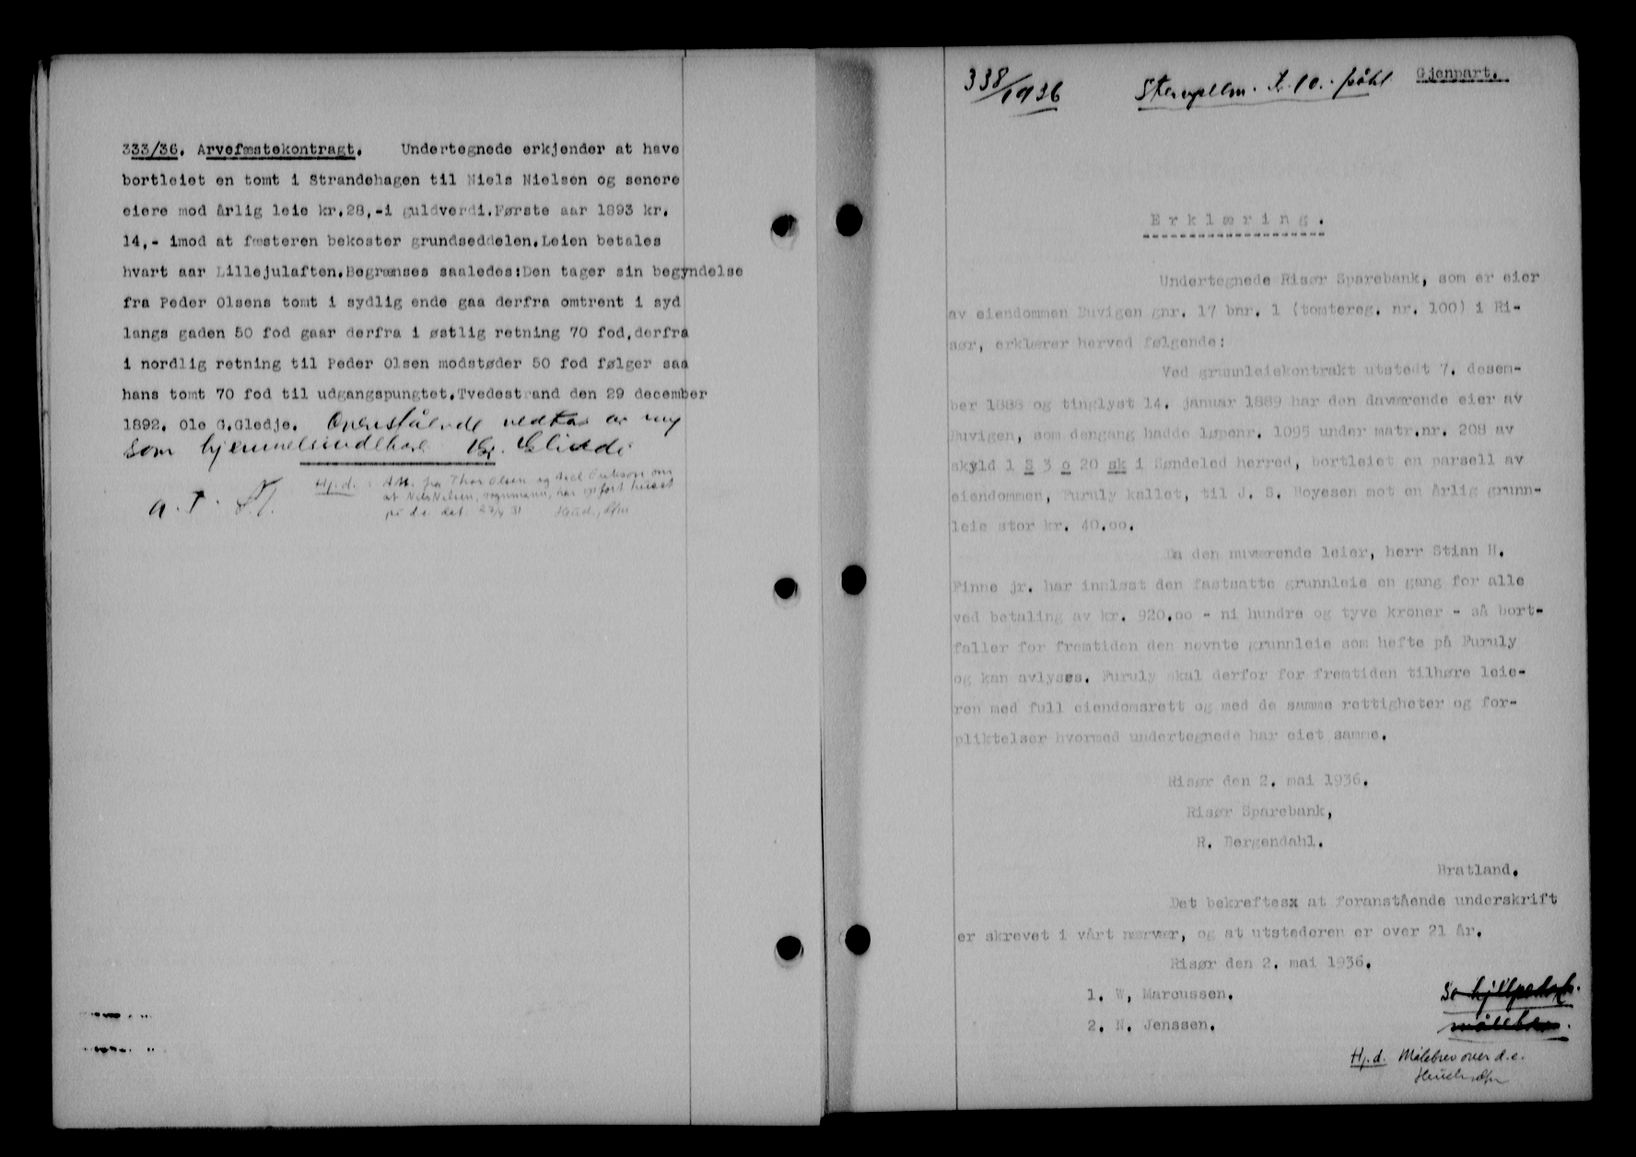 333/36. Arvefæstekontragt. Undertegnede erkjender at have
bortleiet en tomt i Strandehagen til Niels Nielsen og senere
eiere mod årlig leie kr.28,-i guldverdi.Første aar 1893 kr.
14,- imod at fæsteren bekoster grundseddelen.Leien betales
hvart aar Lillejulaften.Begrænses saaledes:Den tager sin begyndelse
fra Peder Olsens tomt i sydlig ende gaa derfra omtrent i syd
langs gaden 50 fod gaar derfra i østlig retning 70 fod,derfra
i nordlig retning til Peder Olsen modstøder 50 fod følger saa
hans tomt 70 fod til udgangspungtet.Tvedestrand den 29 december
1892. Ole G.Gledje. Ovenstående vedtas av mig
som hjemmelsindehav
Hj.d.: Att. fra Thor Olsen og Aksel om
at Nils Nilsen, har opført huset
på d.e.
338/1936 Stempelm. kr. 10.- påhl Gjenpart.
Erklæring.
Undertegnede Risør Sparebank, som er eier
av eiendommen Buvigen gnr. 17 bnr. 1 (tomtereg. nr. 100) i Ri-
sør, erklærer herved følgende:
Ved grunnleiekontrakt utstedt 7. desem-
ber 1888 og tinglyst 14. januar 1889 har den daværende eier av
Buvigen, som dengang hadde løpenr. 1095 under matr.nr. 208 av
skyld 1 S 3 o 20 sk i Søndeled herred, bortleiet en parsell av
eiendommen, Furuly kallet, til J. S. Hoyesen mot en årlig grunn-
leie stor kr. 40.oo.
Da den nuværende leier, herr Stian H.
Finne jr. har innløst den fastsatte grunnleie en gang for alle
ved betaling av kr. 920.oo - ni hundre og tyve kroner - så bort-
faller for fremtiden den nevnte grunnleie som hefte på Furuly
og kan avlyses. Furuly skal derfor for fremtiden tilhøre leie-
ren med full eiendomsrett og med de samme rettigheter og for-
pliktelser hvormed undertegnede har eiet samme.
Risør den 2. mai 1936.
Risør Sparebank,
R. Bergendahl.
Bratland.
Det bekreftesx at foranstående underskrift
er skrevet i vårt nærvær, og at utstederen er over 21 år.
Risør den 2. mai 1936.
1. W. Marcussen.
2. N. Jenssen.
Hj.d. Målebrev over d.e.